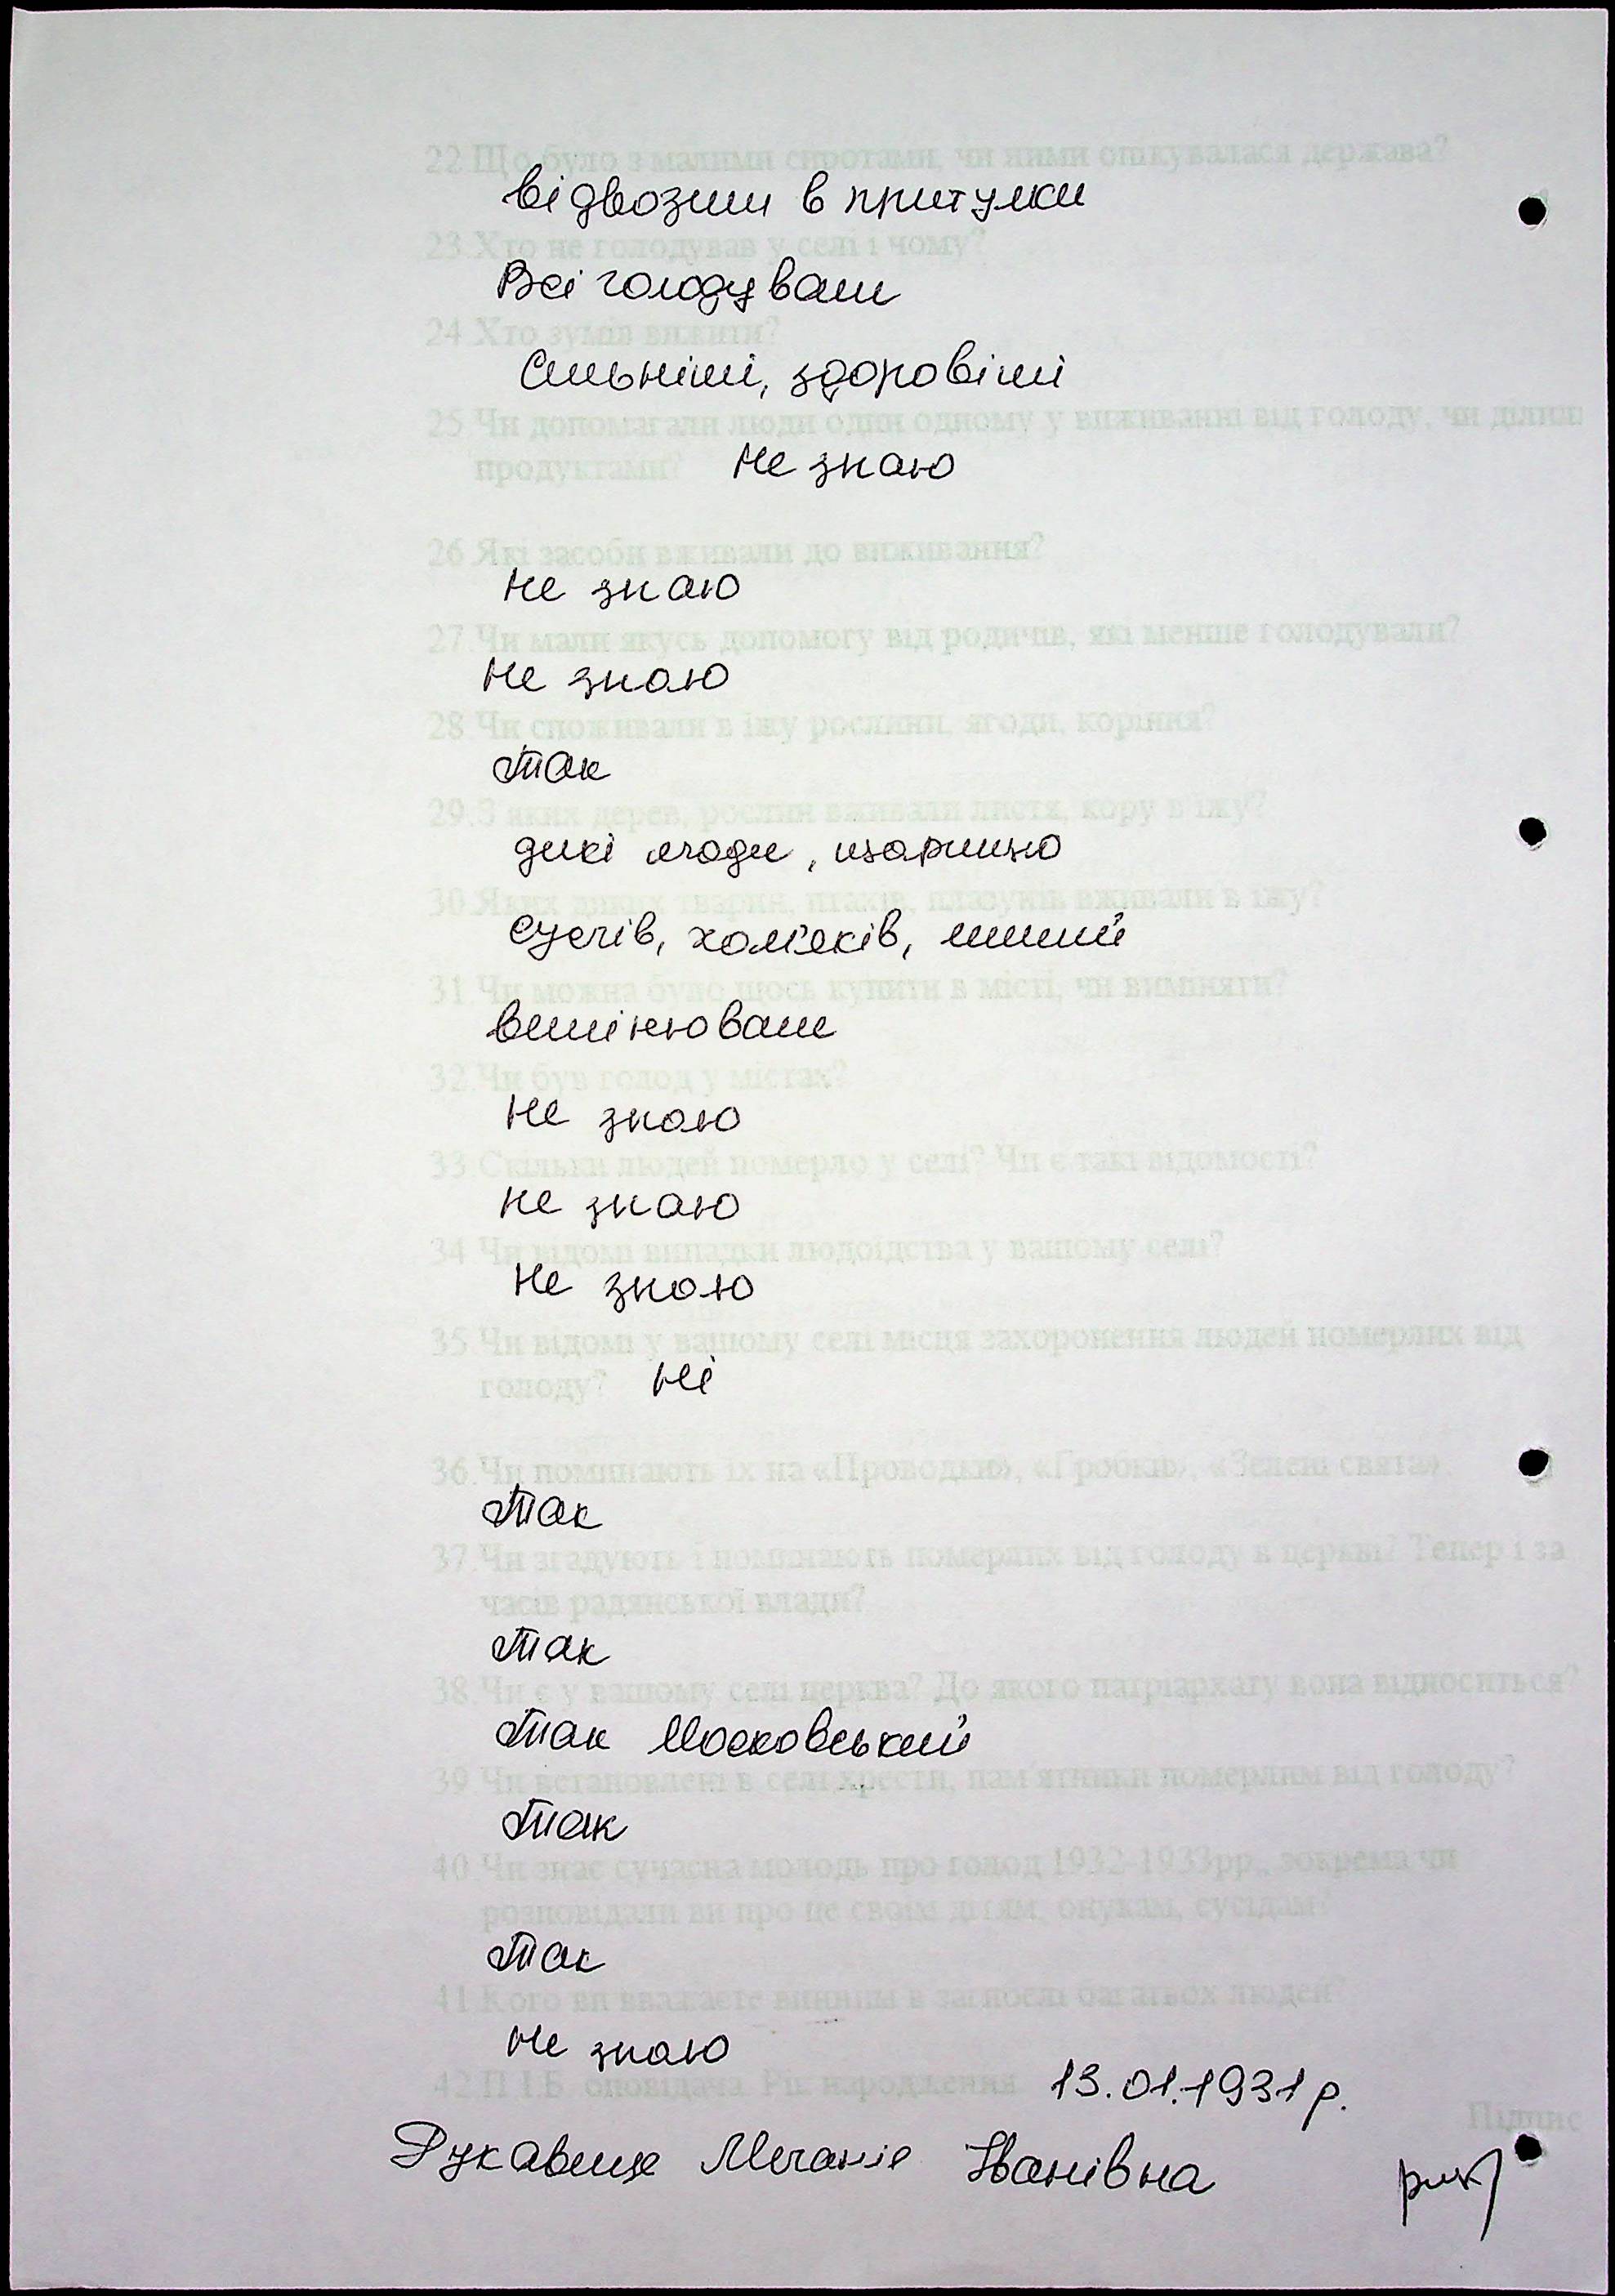 22.Що було з малими сиротами, чи ними опікувалася держава?
відвозили в притулки
23.Хто не голодував у селі і чому?
Всі голодували
24.Хто зумів вижити?
Сильніші, здоровіші
25.Чи допомагали люди один одному у виживанні від голоду, чи ділили
продуктами? Не знаю
26.Які засоби вживали до виживання?
Не знаю
27.Чи мали якусь допомогу від родичів, які менше голодували?
Не знаю
28.Чи споживали в їжу рослини, ягоди, коріння?
Так
29.З яких дерев, рослин вживали листя, кору в їжу?
дикі ягоди,
30.Яких диких тварин, птахів, плазунів вживали в їжу?
Суслів, хом'яків, миший
31.Чи можна було щось купити в місті, чи виміняти?
вимінювали
32.Чи був голод у містах?
Не знаю
33.Скільки людей померло у селі? Чи є такі відомості?
не знаю
34.Чи відомі випадки людоїдства у вашому селі?
Не знаю
35.Чи відомі у вашому селі місця захоронення людей померлих від
голоду? Ні
36.Чи поминають їх на «Проводки», «Гробки», «Зелені свята».
Так
37.Чи згадують і поминають померлих від голоду в церкві? Тепер і за
часів радянської влади?
Так
38.Чи є у вашому селі церква? До якого патріархату вона відноситься?
Так Московський
39.Чи встановлені в селі хрести, пам'ятники померлим від голоду?
Так
40.Чи знає сучасна молодь про голод 1932-1933рр., зокрема чи
розповідали ви про це своїм дітям, онукам, сусідам?
Так
41.Кого ви вважаєте винним в загибелі багатьох людей?
Не знаю
42.П.І.Б. оповідача. Рік народження 13.01.1931р.
Підпис
Меланія Іванівна